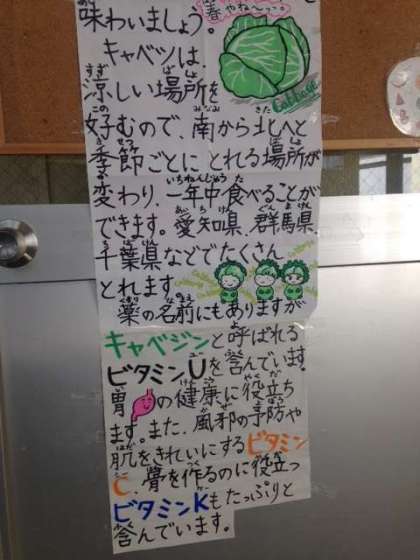 味わいましょう。
春やね〜っ。
キャベツは、
Cabbage
涼しい場所を
好むので、南から北へと
季節ごとにとれる場所が
変わり、一年中食べることが
できます。愛知県、群馬県、
千葉県などでたくさん
とれます
薬の名前にもありますが
キャベジンと呼ばれる
ビタミンUを含んでいます。
胃の健康に役立ち
ます。また、風邪の予防や
肌をきれいにするビタミン
C、骨を作るのに役立つ
ビタミンKもたっぷりと
含んでいます。